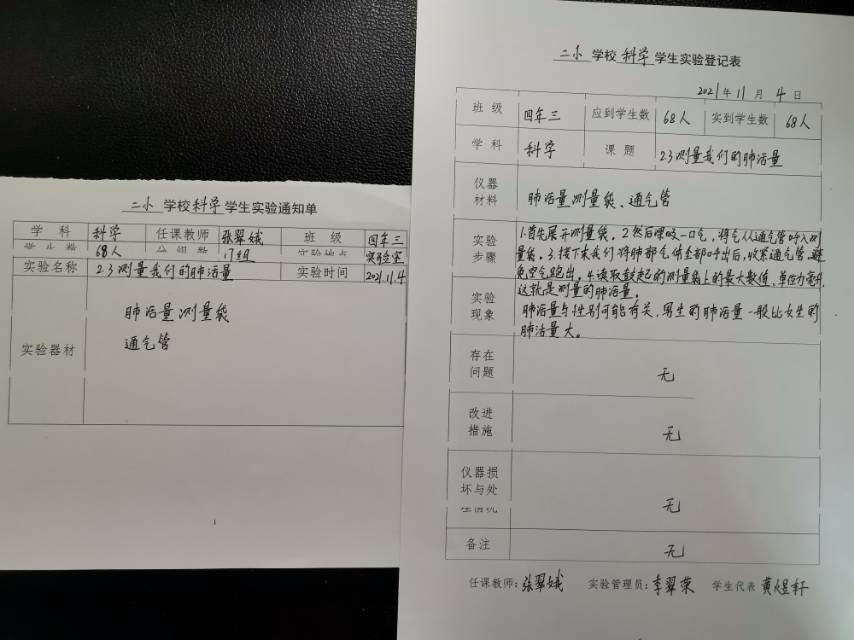 二小 学校 科学 学生实验通知单
学 科 科学 任课教师 张翠娥 班 级 四年三
学生数 68人 分组数 17组 实验地点 实验室
实验名称 2.3测量我们的肺活量 实验时间 2021.11.4
实验器材 肺活量测量袋
通气管
1
二小 学校 科学 学生实验登记表
2021年 11 月 4 日
班 级 四年三 应到学生数 68人 实到学生数 68人
学 科 科学 课 题 2.3测量我们的肺活量
仪器
材料
肺活量测量袋、通气管
实验
步骤
1.首先展开测量袋。2.然后深吸一口气,将气从通气管吹入测
量袋。3.接下来我们将肺部气体全部呼出后,收紧通气管,避
免空气跑出。4.读取鼓起的测量袋上的最大数值,单位为毫升,
这就是测量的肺活量。
实验
现象
肺活量与性别可能有关,男生的肺活量一般比女生的
肺活量大。
存在
问题
无
改进
措施
无
仪器损
坏与处
理情况
无
备注
无
任课教师:张翠娥 实验管理员:李翠荣 学生代表 黄煜轩